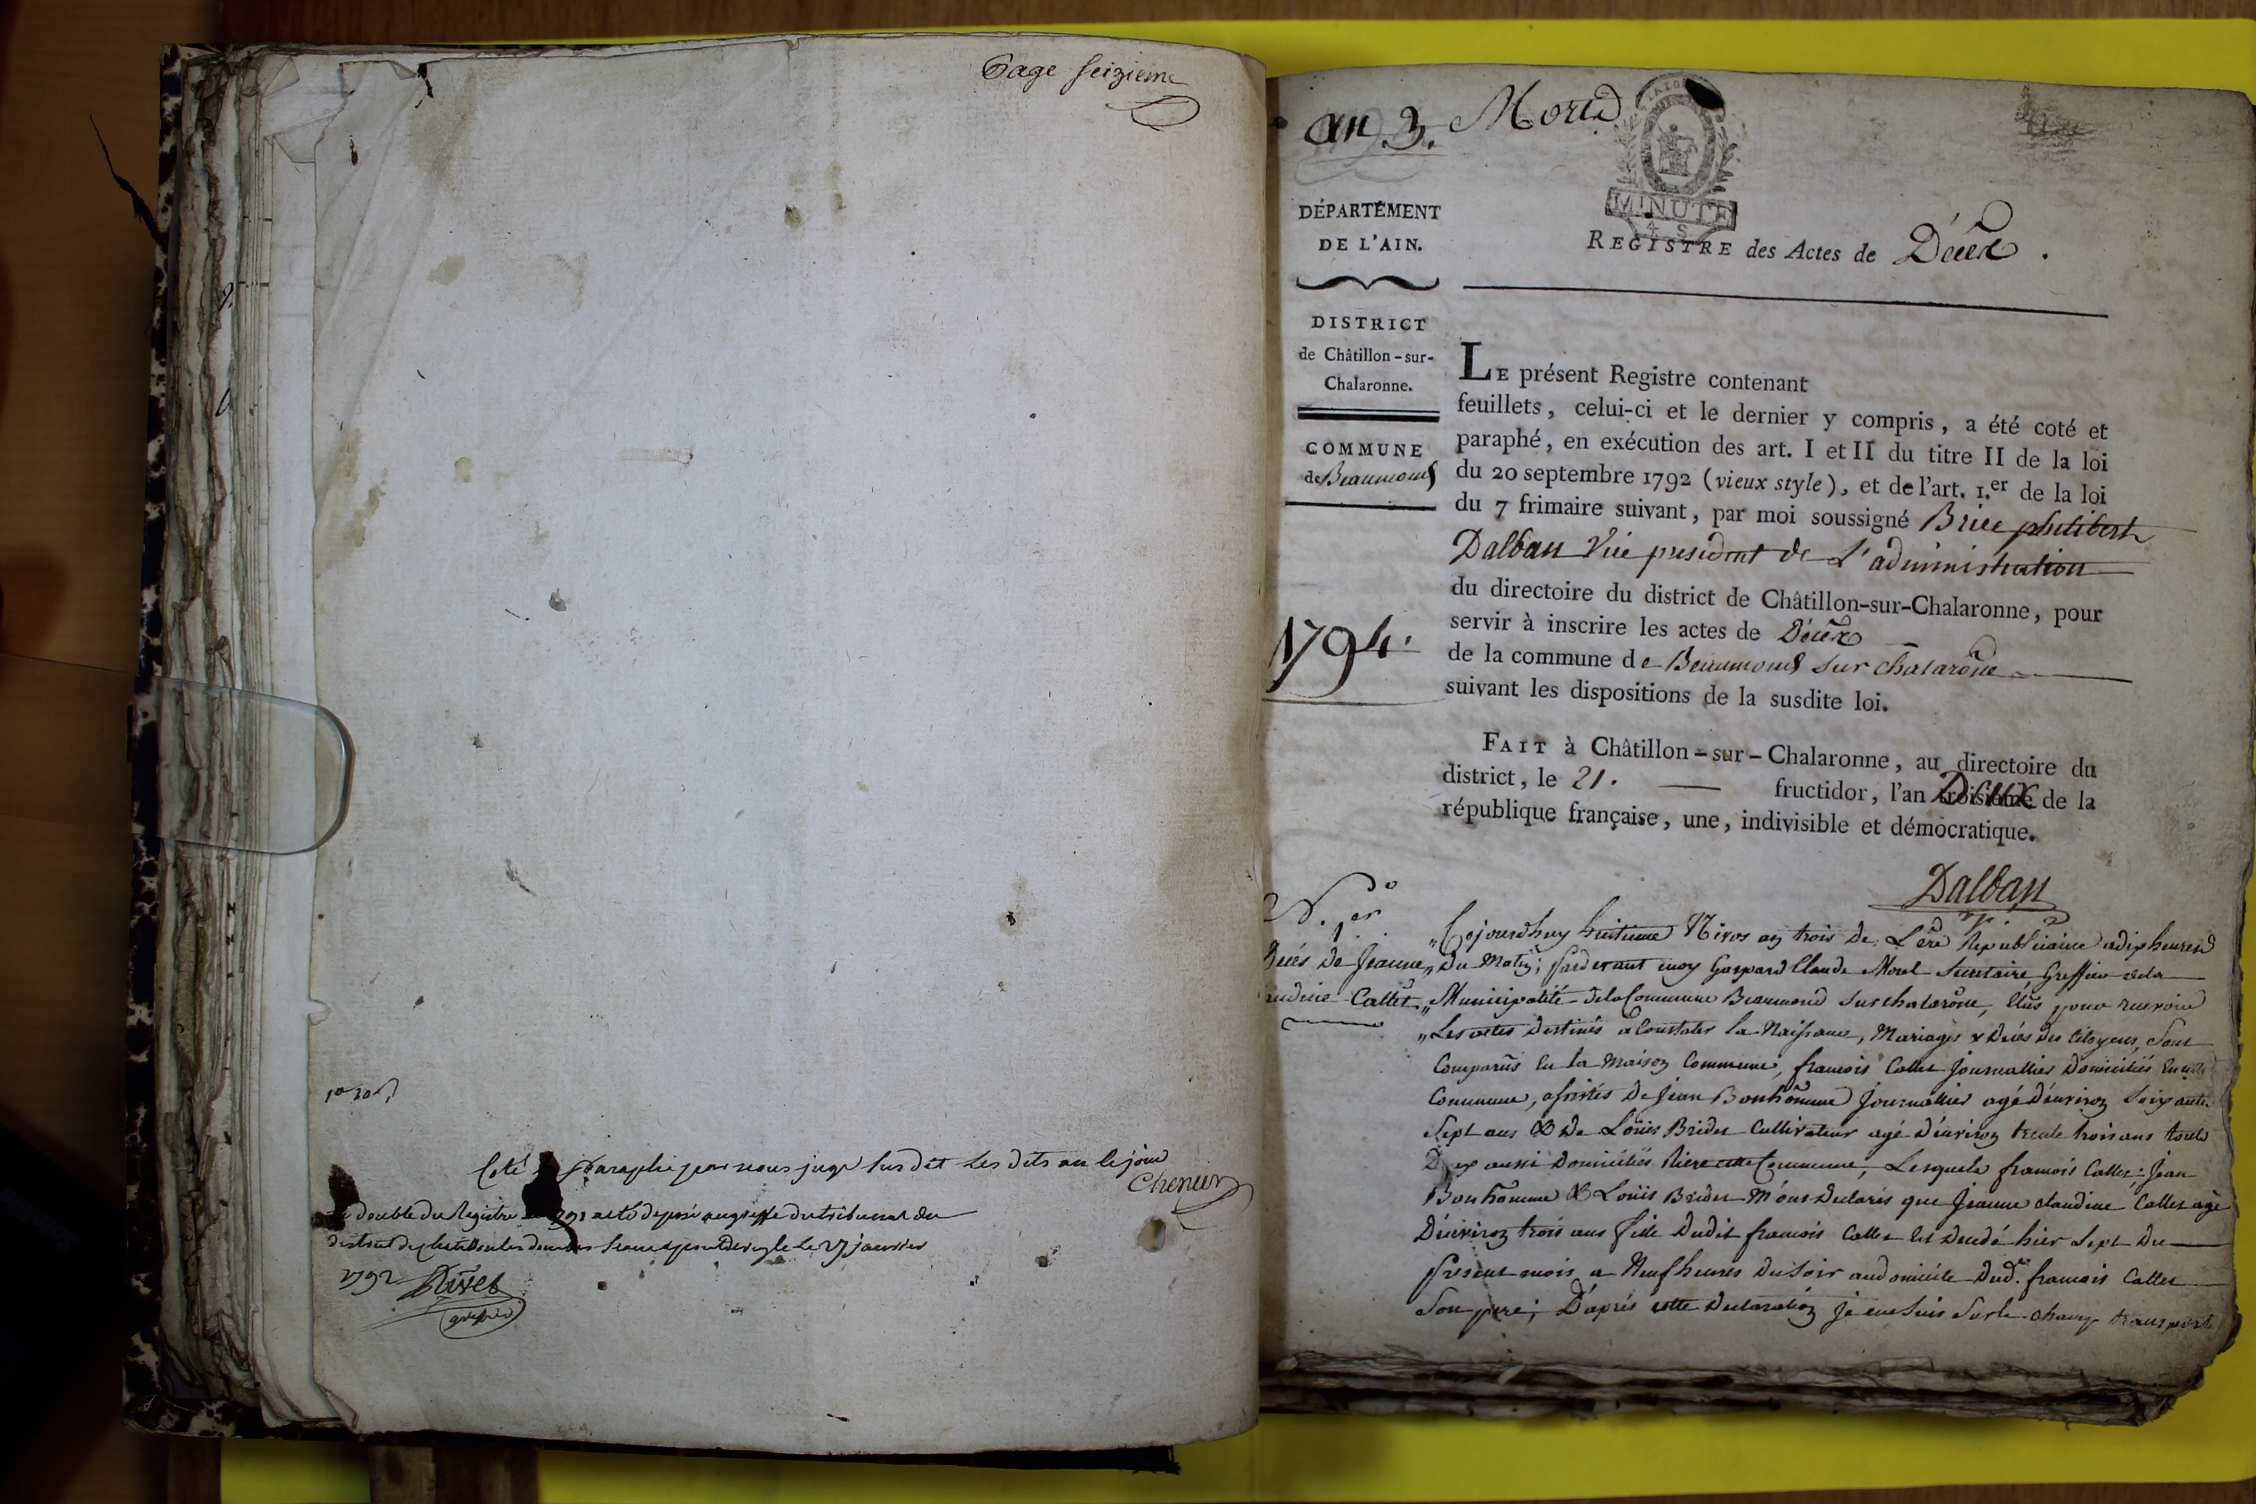 Page seizieme
1er role
Coté & Paraphé par nous juge susdit les dits an le jour
Chenus
double du Registre 1791 a été déposé au greffe du tribunal du
district de Chatillon les le 27 janvier
1792 Rivet
greffier
an 3. Mort
MINUTE
4 S
DÉPARTEMENT
DE L'AIN.
REGISTRE des Actes de Décèz.
DISTRICT
de Châtillon-sur-
Chalaronne.
COMMUNE
de Beaumont
1794.
LE présent Registre contenant
feuillets, celui-ci et le dernier y compris, a été coté et
paraphé, en exécution des art. I et II du titre II de la loi
du 20 septembre 1792 (vieux style), et de l'art. 1.er de la loi
du 7 frimaire suivant, par moi soussigné Brice philibert
Dalban Vice president de L'administration
du directoire du district de Châtillon-sur-Chalaronne, pour
servir à inscrire les actes de Décèz
de la commune de Beaumont sur chalarône
suivant les dispositions de la susdite loi.
FAIT à Châtillon-sur-Chalaronne, au directoire du
district, le 21. fructidor, l'an troisieme Deux de la
république française, une, indivisible et démocratique.
Dalban
N.o 1er
Décés de Jeanne
Claudine Callet
Cejourdhuy huitieme Nivos an trois de L'ere Republicaine a dix heures
Du Matin; Pardevant moy Gaspard Claude Morel Secretaire Greffier de la
Municipalité de la Commune Beaumond sur chalarône, Elus pour recevoir
Les actes Destinés a Constater la Naissance, Mariages & Décés des Citoyens, Sont
Comparus En la Maison Commune, francois Callet Journallier Domicilié En cette
Commune, assistés De Jean Bonhomme Journallier agé D'environ Soixante
Sept ans & De Loüis Bridet Cultivateur agé D'environ trente trois ans touts
Deux aussi Domiciliés Riere cette Commune, Lesquels francois Callet, Jean
Bonhomme & Loüis Bridet M'ont Declarés que Jeanne claudine Callet agé
D'environ trois ans fille Dudit francois Callet Est Decedé hier Sept Du
Present mois a Neuf heures Du Soir au domicile Dud. francois Callet
Son pere; D'aprés cette Declaration je me Suis Sur le champ transporté